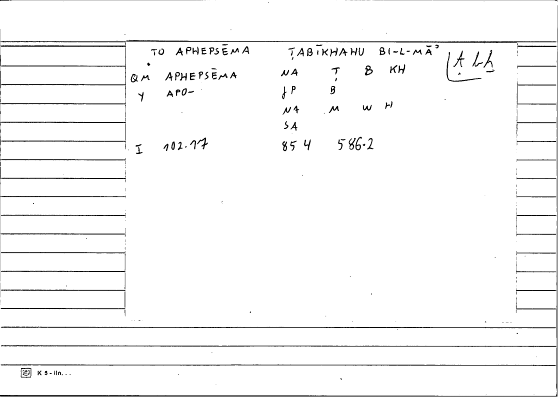 TO APHEPSĒMA ṬABĪKHAHU BI-L-MĀʾ
QM APHEPSĒMA NA Ṭ B KH
Y APO- JP B
NA M W H
SA
I 102.17 85 4 586.2
K 5 - lin...